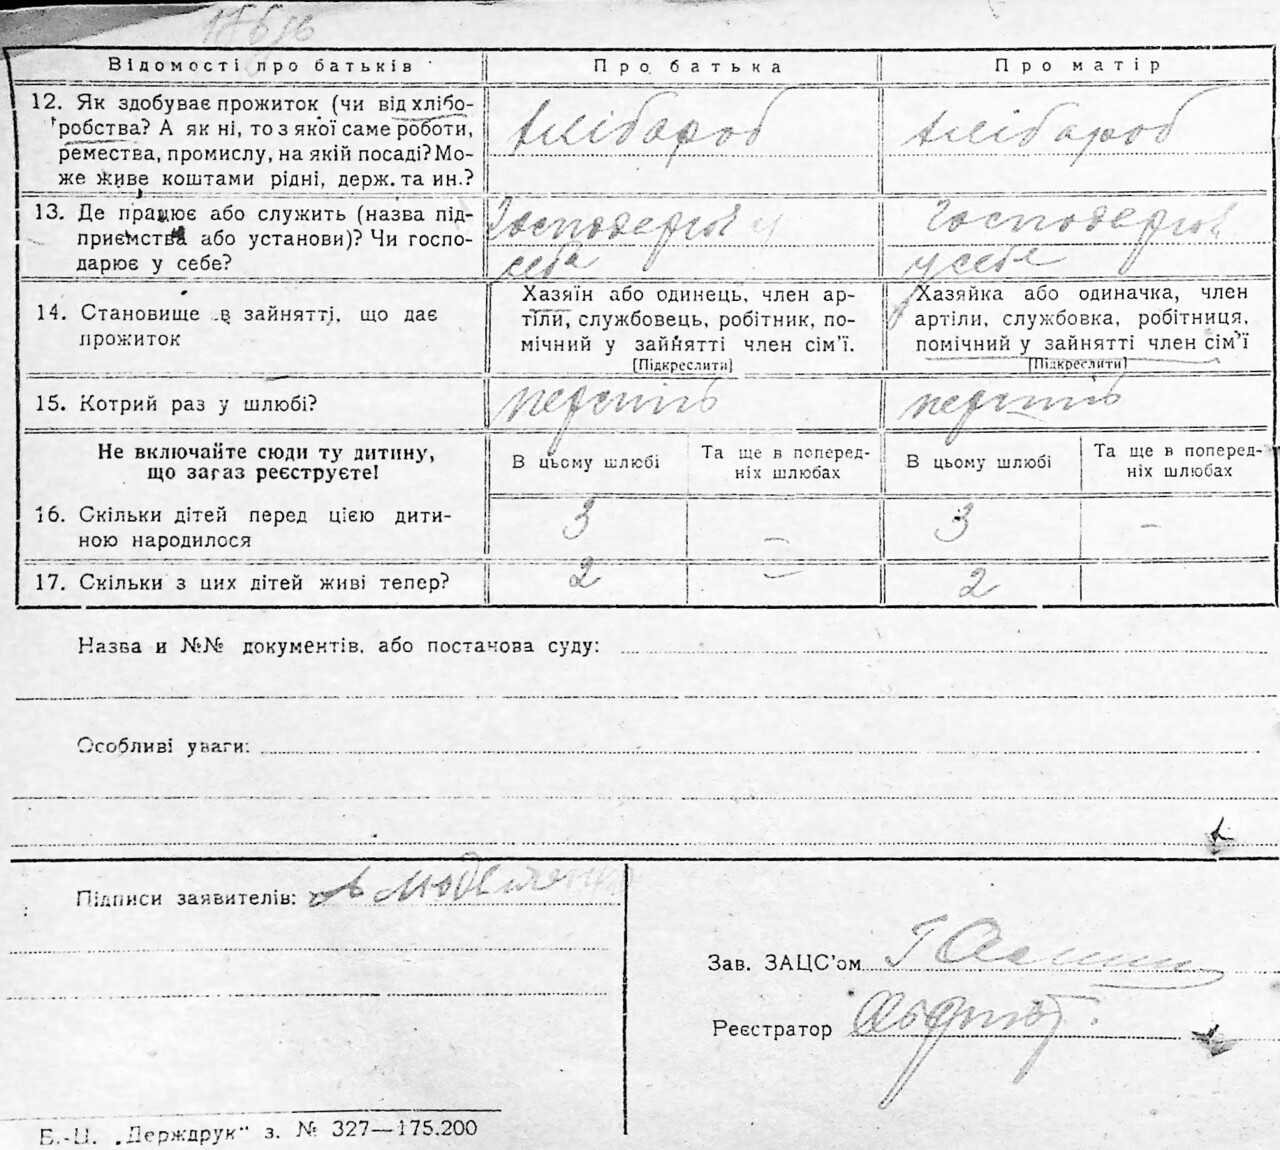 Відомості про батьків
Про батька
Про матір
12. Як здобуває прожиток (чи від хлібо-
робства? А як ні, то з якої саме роботи,
ремества, промислу, на якій посаді? Мо-
же живе коштами рідні, держ. та ин.?
хлібароб
хлібароб
13. Де працює або служить (назва під-
приємства або установи)? Чи госпо-
дарює у себе?
Господерює у
себе
Господерює
у себе
14. Становище в зайнятті, що дає
прожиток
Хазяїн або одинець, член ар-
тіли, службовець, робітник, по-
мічний у зайнятті член сім'ї.
[Підкреслити]
Хазяйка або одиначка, член
артіли, службовка, робітниця,
помічний у зайнятті член сім'ї
[Підкреслити]
15. Котрий раз у шлюбі?
Не включайте сюди ту дитину,
що загаз реєструєте!
В цьому шлюбі
Та ще в поперед-
ніх шлюбах
В цьому шлюбі
Та ще в поперед-
ніх шлюбах
16. Скільки дітей перед цією дити-
ною народилося
3
–
3
–
17. Скільки з цих дітей живі тепер?
2
–
2
Назва и №№ документів, або постанова суду:
Особливі уваги:
Підписи заявителів:
Зав. ЗАЦС'ом
Реєстратор
Б.-Ц. „Держдрук" з. № 327—175.200